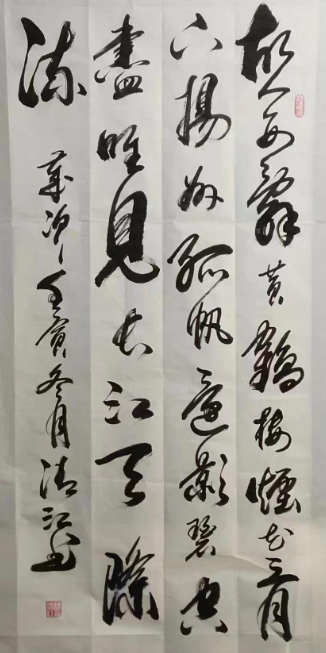 故人西辭黄鶴樓煙花三月
下揚州孤帆遠影碧空
盡唯見长江天際
流
壬寅冬月清江书